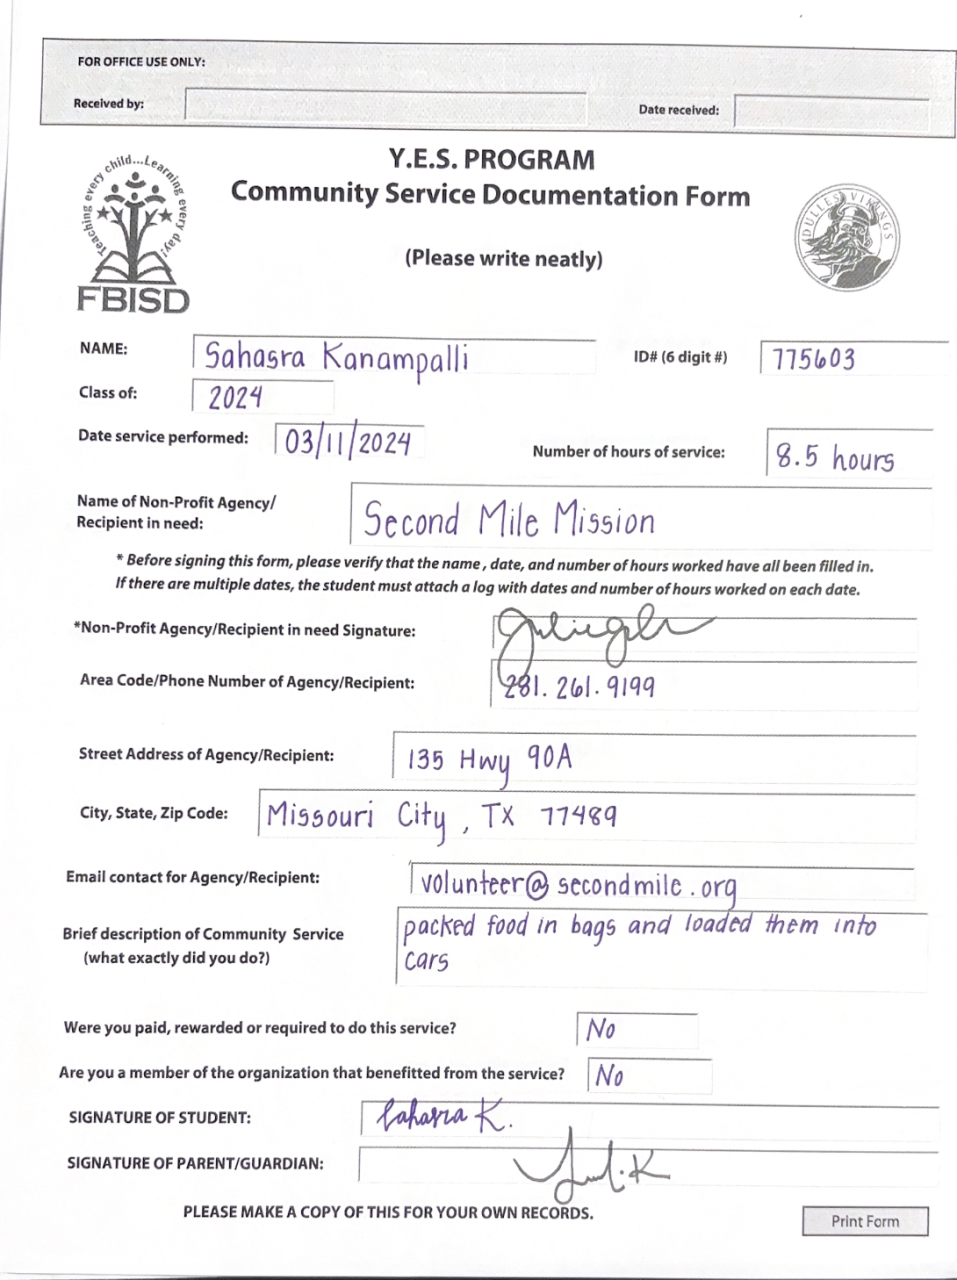 FOR OFFICE USE ONLY:
Received by: Date received:
Teaching every child...Learning every day!
FBISD
Y.E.S. PROGRAM
Community Service Documentation Form
(Please write neatly)
DULLES VIKINGS
NAME: Sahasra Kanampalli ID# (6 digit #) 775603
Class of: 2024
Date service performed: 03/11/2024 Number of hours of service: 8.5 hours
Name of Non-Profit Agency/
Recipient in need: Second Mile Mission
* Before signing this form, please verify that the name , date, and number of hours worked have all been filled in.
If there are multiple dates, the student must attach a log with dates and number of hours worked on each date.
*Non-Profit Agency/Recipient in need Signature:
Area Code/Phone Number of Agency/Recipient: 281. 261. 9199
Street Address of Agency/Recipient: 135 Hwy 90A
City, State, Zip Code: Missouri City , TX 77489
Email contact for Agency/Recipient: volunteer@secondmile.org
Brief description of Community Service packed food in bags and loaded them into
(what exactly did you do?) cars
Were you paid, rewarded or required to do this service? No
Are you a member of the organization that benefitted from the service? No
SIGNATURE OF STUDENT: Sahasra K.
SIGNATURE OF PARENT/GUARDIAN:
PLEASE MAKE A COPY OF THIS FOR YOUR OWN RECORDS.
Print Form